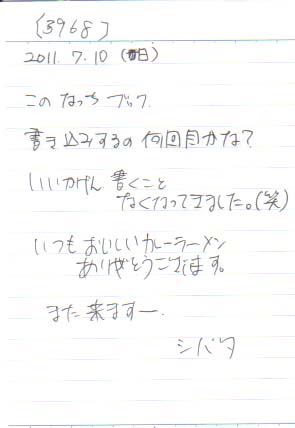 [3968]
2011.7.10 (日)
この なっちブック
書き込みするの何回目かな?
いいかげん 書くこと
なくなってきました。(笑)
いつもおいしいカレーラーメン
ありがとうございます。
また来ますー。
シバタ